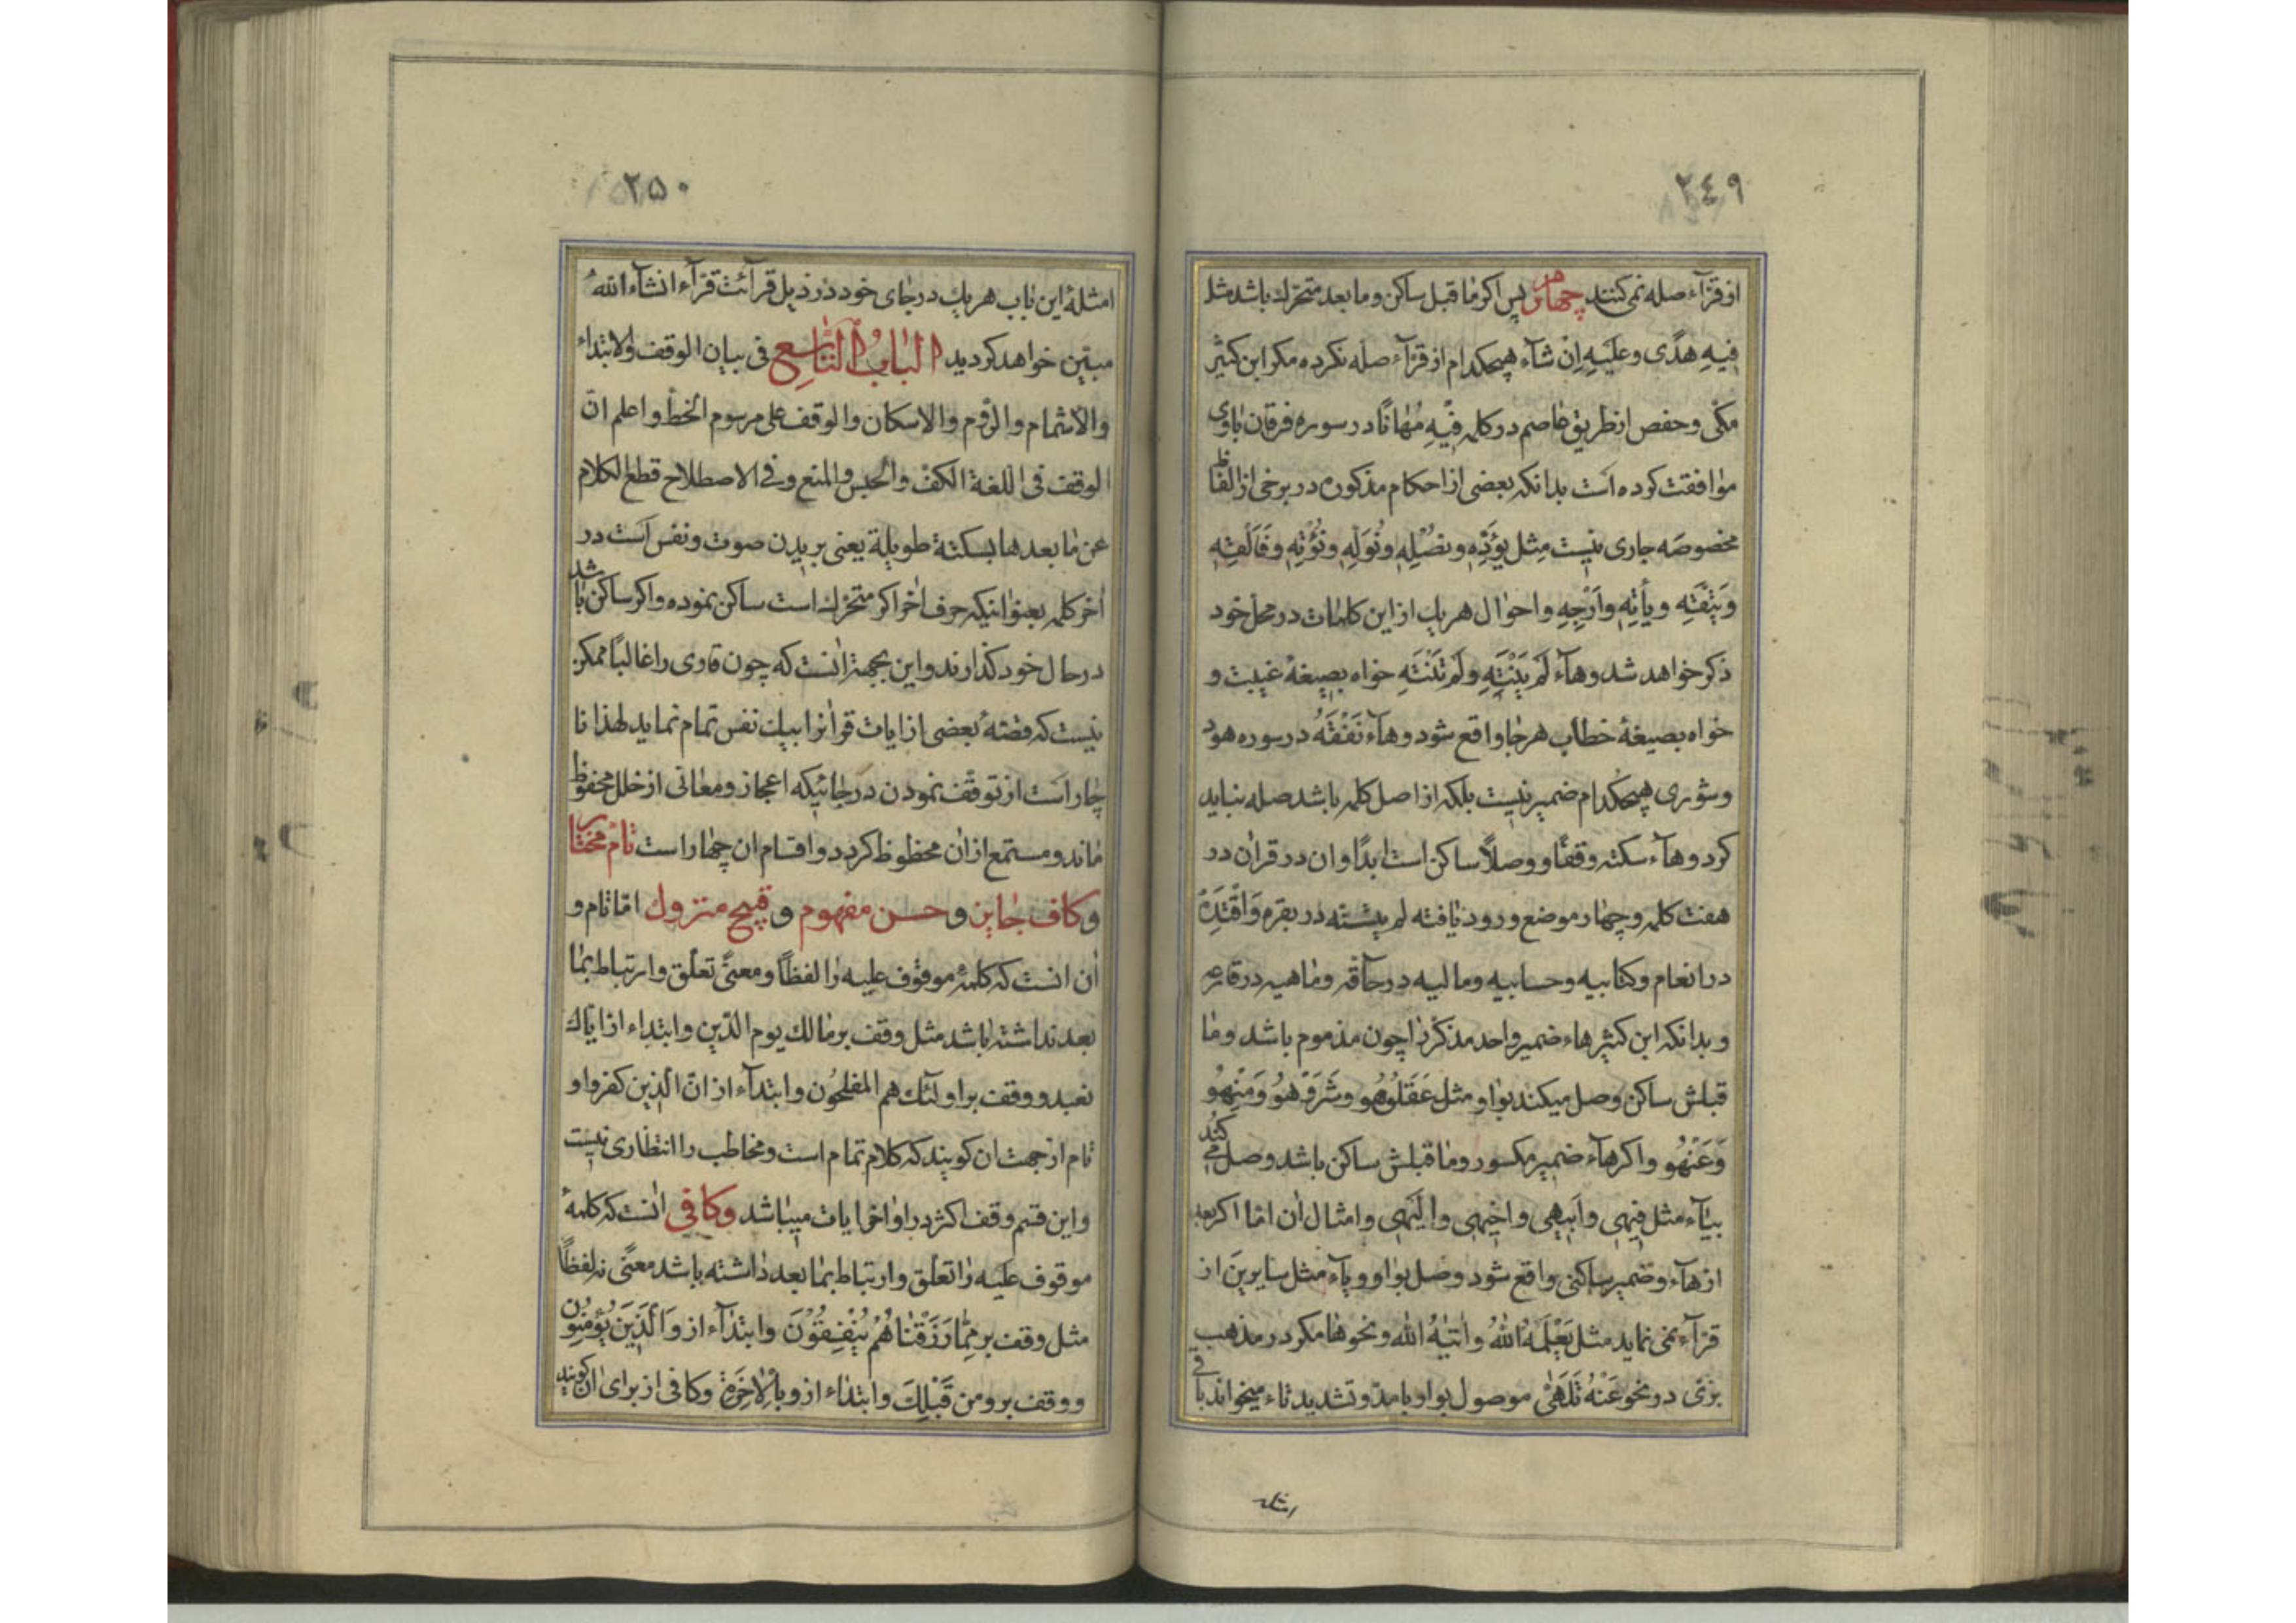 ٢٤٩
از قرّآء صله نمی کنند چهارم پس اکر ما قبل ساکن و ما بعد متحرّك باشد مثل
فیهِ هدًی و علیَهِ اِنْ شآء هیچکدام از قرّآء صله نکرده مکر ابن کثیر
مکّی و حفص از طریق عاصم در کلمه فیْهِ مُهٰانًا در سوره فرقان با وی
موٰافقت کرده است بدانکه بعضی از احکام مذکوره در برخی از الفاظ
مخصوصه جاری نیست مثل یؤدّهِ و نصْلِهِ و نُوَلّهِ و نُؤْتِهِ و فَاَلْقِهِ
وَیَتّقهِ و یأتِهِ و اَرْجِهِ و احوٰال هر یك از این کلمات در محلّ خود
ذکر خواهد شد و هآء لَمْ یَنْتَهِ و لَم تَنْتَهِ خواه بصیغهٔ غیبت و
خواه بصیغهٔ خطاب هر جا واقع شود و هآء نَفْقَهُ در سوره هود
و شوری هیچکدام ضمیر نیست بلکه از اصل کلمه باشد صله نباید
کرد و هآء سکته وقفًا و وصلًا ساکن است ابدًا و ان در قران در
هفت کلمه و چهار موضع ورود یافته لم یتسنّه در بقره وَاقْتَدِهْ
در انعام و کتابیه و حسابیه و مالیه در حآقّه و ماهیه در قارعه
و بدانکه ابن کثیر هاء ضمیر واحد مذکّر را چون مذموم باشد و ما
قبلش ساکن وصل میکند بوٰاو مثل عَقَلُوهُو وشَرَوْهُو وَمِنْهُو
وَعَنْهُو و اکر هآء ضمیر مکسور و ما قبلش ساکن باشد وصل می کند
بیآء مثل فیهی و اَبیهی و اخیهی و الَیهی و امثال ان امّا اکر بعد
از هآء و ضمیر ساکنی واقع شود وصل بوٰاو و یآء مثل سایرین از
قرّآء نمی نماید مثل یَعْلَمهُ اللهُ و اٰتیٰهُ الله و نحوها مکر در مذهب
بزّی در نحو عَنْهُ تَلَهّٰی موصول بوٰاو با مدّ و تشدید تاء میخواند باقی
امثله
٢٥٠
امثلهٔ این باب هر یك در جای خود در ذیل قرآئت قرّآء انشآء اللهُ
مبیّن خواهد کردید البابُ التّاسِع فی بیان الوقف والابتداء
والاشمام والرّوم والاسکان والوقف علی مرسوم الخطّ واعلم انّ
الوقف فی اللغة الکفّ والحبس والمنع وفی الاصطلاح قطع الکلام
عن ما بعدها بسکتة طویلة یعنی بریدن صوت و نفس است در
اخر کلمه بعنوٰانیکه حرف اخر اکر متحرّك است ساکن نموده و اکر ساکن باشد
در حال خود کذارند و این بجهة انست که چون قاری را غالبًا ممکن
نیست که قصّهٔ بعضی از ایات قرانرا بیك نفس تمام نماید لهذا نا
چار است از توقّف نمودن در جائیکه اعجاز و معانی از خلل محفوظ
ماند و مستمع از ان محظوظ کردد و اقسام ان چهار است تامّ مختار
و کاف جایز و حسن مفهوم و قبیح متروك امّا تام و
ان انست که کلمهٔ موقوف علیه را لفظًا و معنیً تعلّق و ارتباط بما
بعد نداشته باشد مثل وقف بر مالك یوم الدّین و ابتداء از ایّاك
نعبد و وقف بر اولئك هم المفلحُون و ابتدآء از انّ الّذین کفروا و
تام از جهت ان کویند که کلام تمام است و مخاطب را انتظاری نیست
و این قسم وقف اکثر در اواخر ایات میباشد وکافی انست که کلمهٔ
موقوف علیه را تعلّق و ارتباط بما بعد داشته باشد معنًی نه لفظًا
مثل وقف بر مِمّا رَزَقْنٰاهُمْ یُنْفِقُوْنَ و ابتدآء از وَالّذینَ یُؤمِنُون
و وقف بر و من قَبْلِكَ و ابتداء از و بِالْاٰخِرَةِ و کافی از برای ان کویند